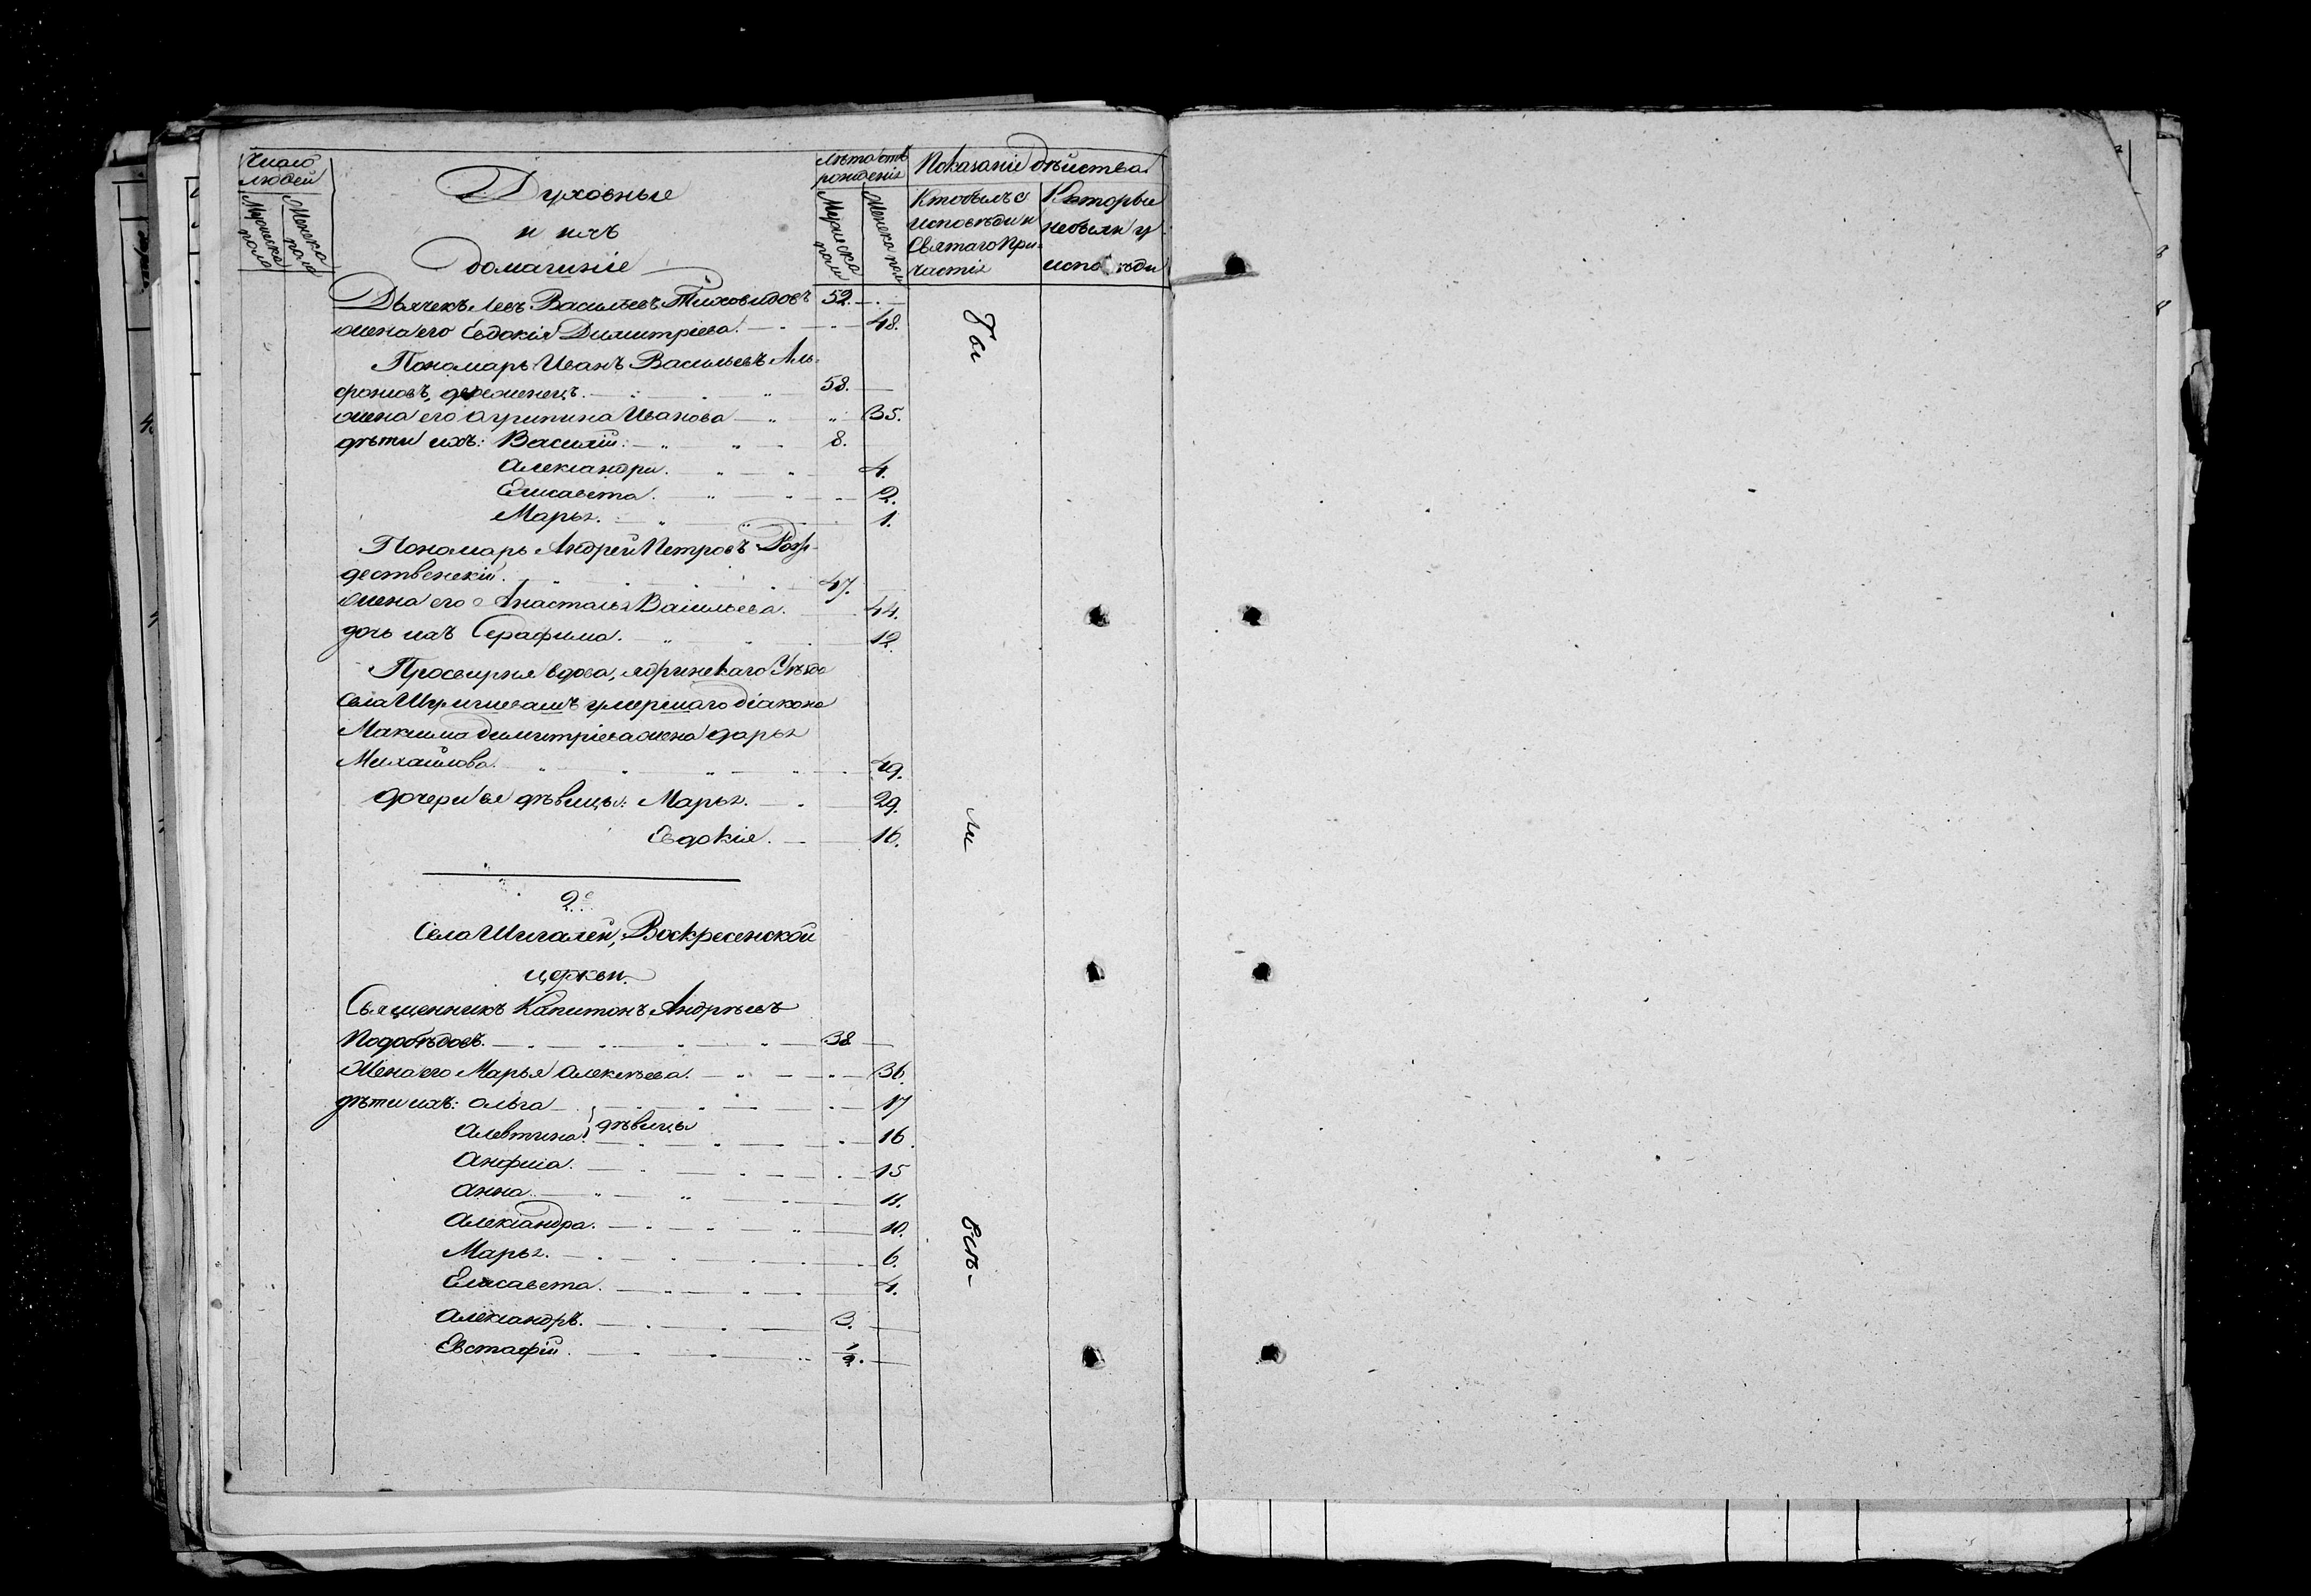 Число людей
Мужеска пола
Женска пола
Духовные
и ихъ
домашніе
Лѣта отъ рожденія
Мужеска пола
Женска пола
Показаніе дѣйства
Кто былъ у
исповѣди и
Святаго При-
частія
Которые
небыли у
исповѣди
Дьячекъ Левъ Васильевъ Тиховидовъ 52.
жена его Евдокія Димитріева. 48.
Пономарь Иванъ Васильевъ Аль-
фонсовъ, двоеженецъ. 58.
жена его Агрипина Иванова 35.
дѣти ихъ: Василій. 8.
Александра. 4.
Елисавета. 2.
Марья. 1.
Пономарь Андрей Петровъ Рож-
дественскій. 47.
жена его Анастасья Васильева. 44.
дочь ихъ Серафима. 12.
Просвирня вдова, ядринскаго Уѣзда
Села умершаго діакона
Максима Димитріева жена Дарья
Михайлова. 49.
дочери ея дѣвицы: Марья. 29.
Евдокія. 16.
2е
Села Шигалей, Воскресенской
церкви.
Священникъ Капитонъ Андреевъ
Подобѣдовъ. 38
Жена его Марья Алексѣева. 36.
дѣти ихъ: Ольга 17
Алевтина дѣвицы 16.
Анфиса. 15
Анна. 11.
Александра. 10.
Марья. 6.
Елисавета. 4.
Александръ. 3.
Евстафій. 1/2.
бы
ли
всѣ